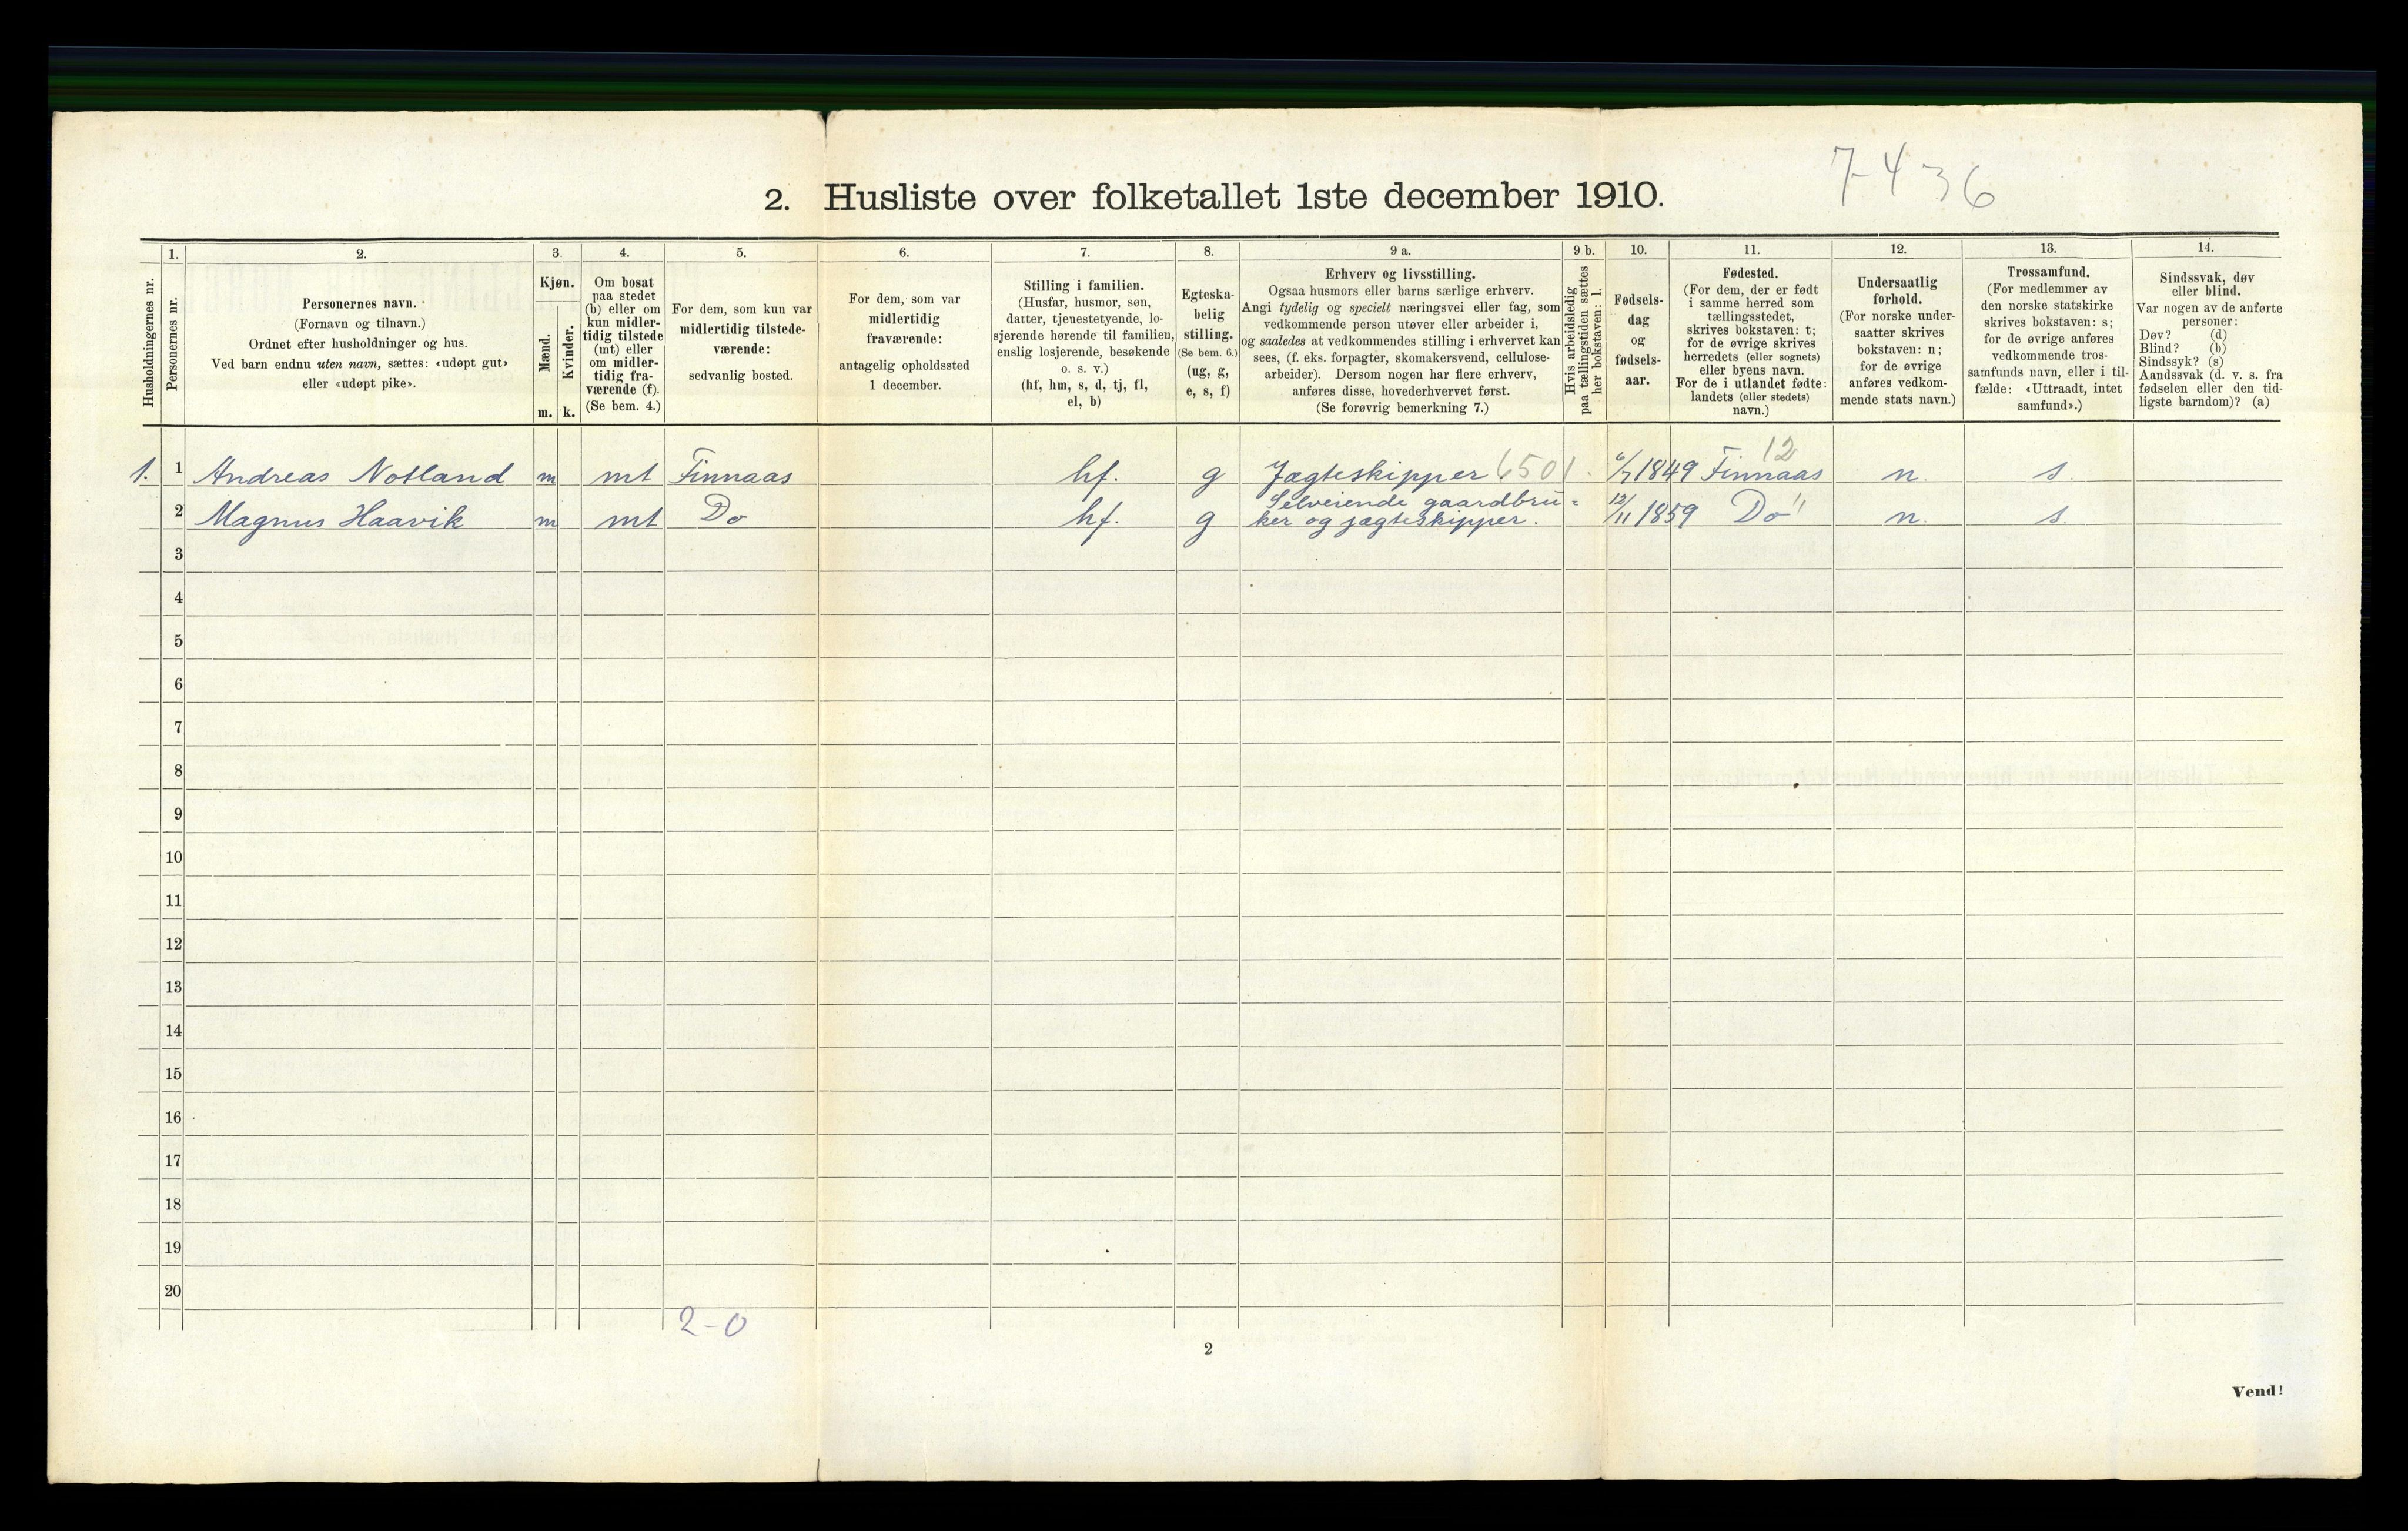 7-436
2. Husliste over folketallet 1ste december 1910.
Husholdningernes nr.
1.
Personernes nr.
2.
Personernes navn.
(Fornavn og tilnavn.)
Ordnet efter husholdninger og hus.
Ved barn endnu uten navn, sættes: «udøpt gut»
eller «udøpt pike».
3.
Kjøn.
Mænd.
Kvinder.
m. k.
4.
Om bosat
paa stedet
(b) eller om
kun midler-
tidig tilstede
(mt) eller
om midler-
tidig fra-
værende (f).
(Se bem. 4.)
5.
For dem, som kun var
midlertidig tilstede-
værende:
sedvanlig bosted.
6.
For dem, som var
midlertidig
fraværende:
antagelig opholdssted
1 december.
7.
Stilling i familien.
(Husfar, husmor, søn,
datter, tjenestetyende, lo-
sjerende hørende til familien,
enslig losjerende, besøkende
o. s. v.)
(hf, hm, s, d, tj, fl,
el, b)
8.
Egteska-
belig
stilling.
(Se bem. 6.)
(ug, g,
e, s, f)
9 a.
Erhverv og livsstilling.
Ogsaa husmors eller barns særlige erhverv.
Angi tydelig og specielt næringsvei eller fag, som
vedkommende person utøver eller arbeider i,
og saaledes at vedkommendes stilling i erhvervet kan
sees, (f. eks. forpagter, skomakersvend, cellulose-
arbeider). Dersom nogen har flere erhverv,
anføres disse, hovederhvervet først.
(Se forøvrig bemerkning 7.)
9 b.
Hvis arbeidsledig
paa tællingstiden sættes
her bokstaven: l.
10.
Fødsels-
dag
og
fødsels-
aar.
11.
Fødested.
(For dem, der er født
i samme herred som
tællingsstedet,
skrives bokstaven: t;
for de øvrige skrives
herredets (eller sognets)
eller byens navn.
For de i utlandet fødte:
landets (eller stedets)
navn.)
12.
Undersaatlig
forhold.
(For norske under-
saatter skrives
bokstaven: n;
for de øvrige
anføres vedkom-
mende stats navn.)
13.
Trossamfund.
(For medlemmer av
den norske statskirke
skrives bokstaven: s;
for de øvrige anføres
vedkommende tros-
samfunds navn, eller i til-
fælde: «Uttraadt, intet
samfund».)
14.
Sindssvak, døv
eller blind.
Var nogen av de anførte
personer:
Døv? (d)
Blind? (b)
Sindssyk? (s)
Aandssvak (d. v. s. fra
fødselen eller den tid-
ligste barndom)? (a)
1. 1 Andreas Notland m mt Finnaas hf. g Jægteskipper 6501. 6/7 1849 Finnaas 12 n. s.
2 Magnus Haavik m mt Do hf. g Selveiende gaardbru-
ker og jægteskipper. 12/11 1859 Do " n. s.
3
4
5
6
7
8
9
10
11
12
13
14
15
16
17
18
19
20
2-0
2
Vend!